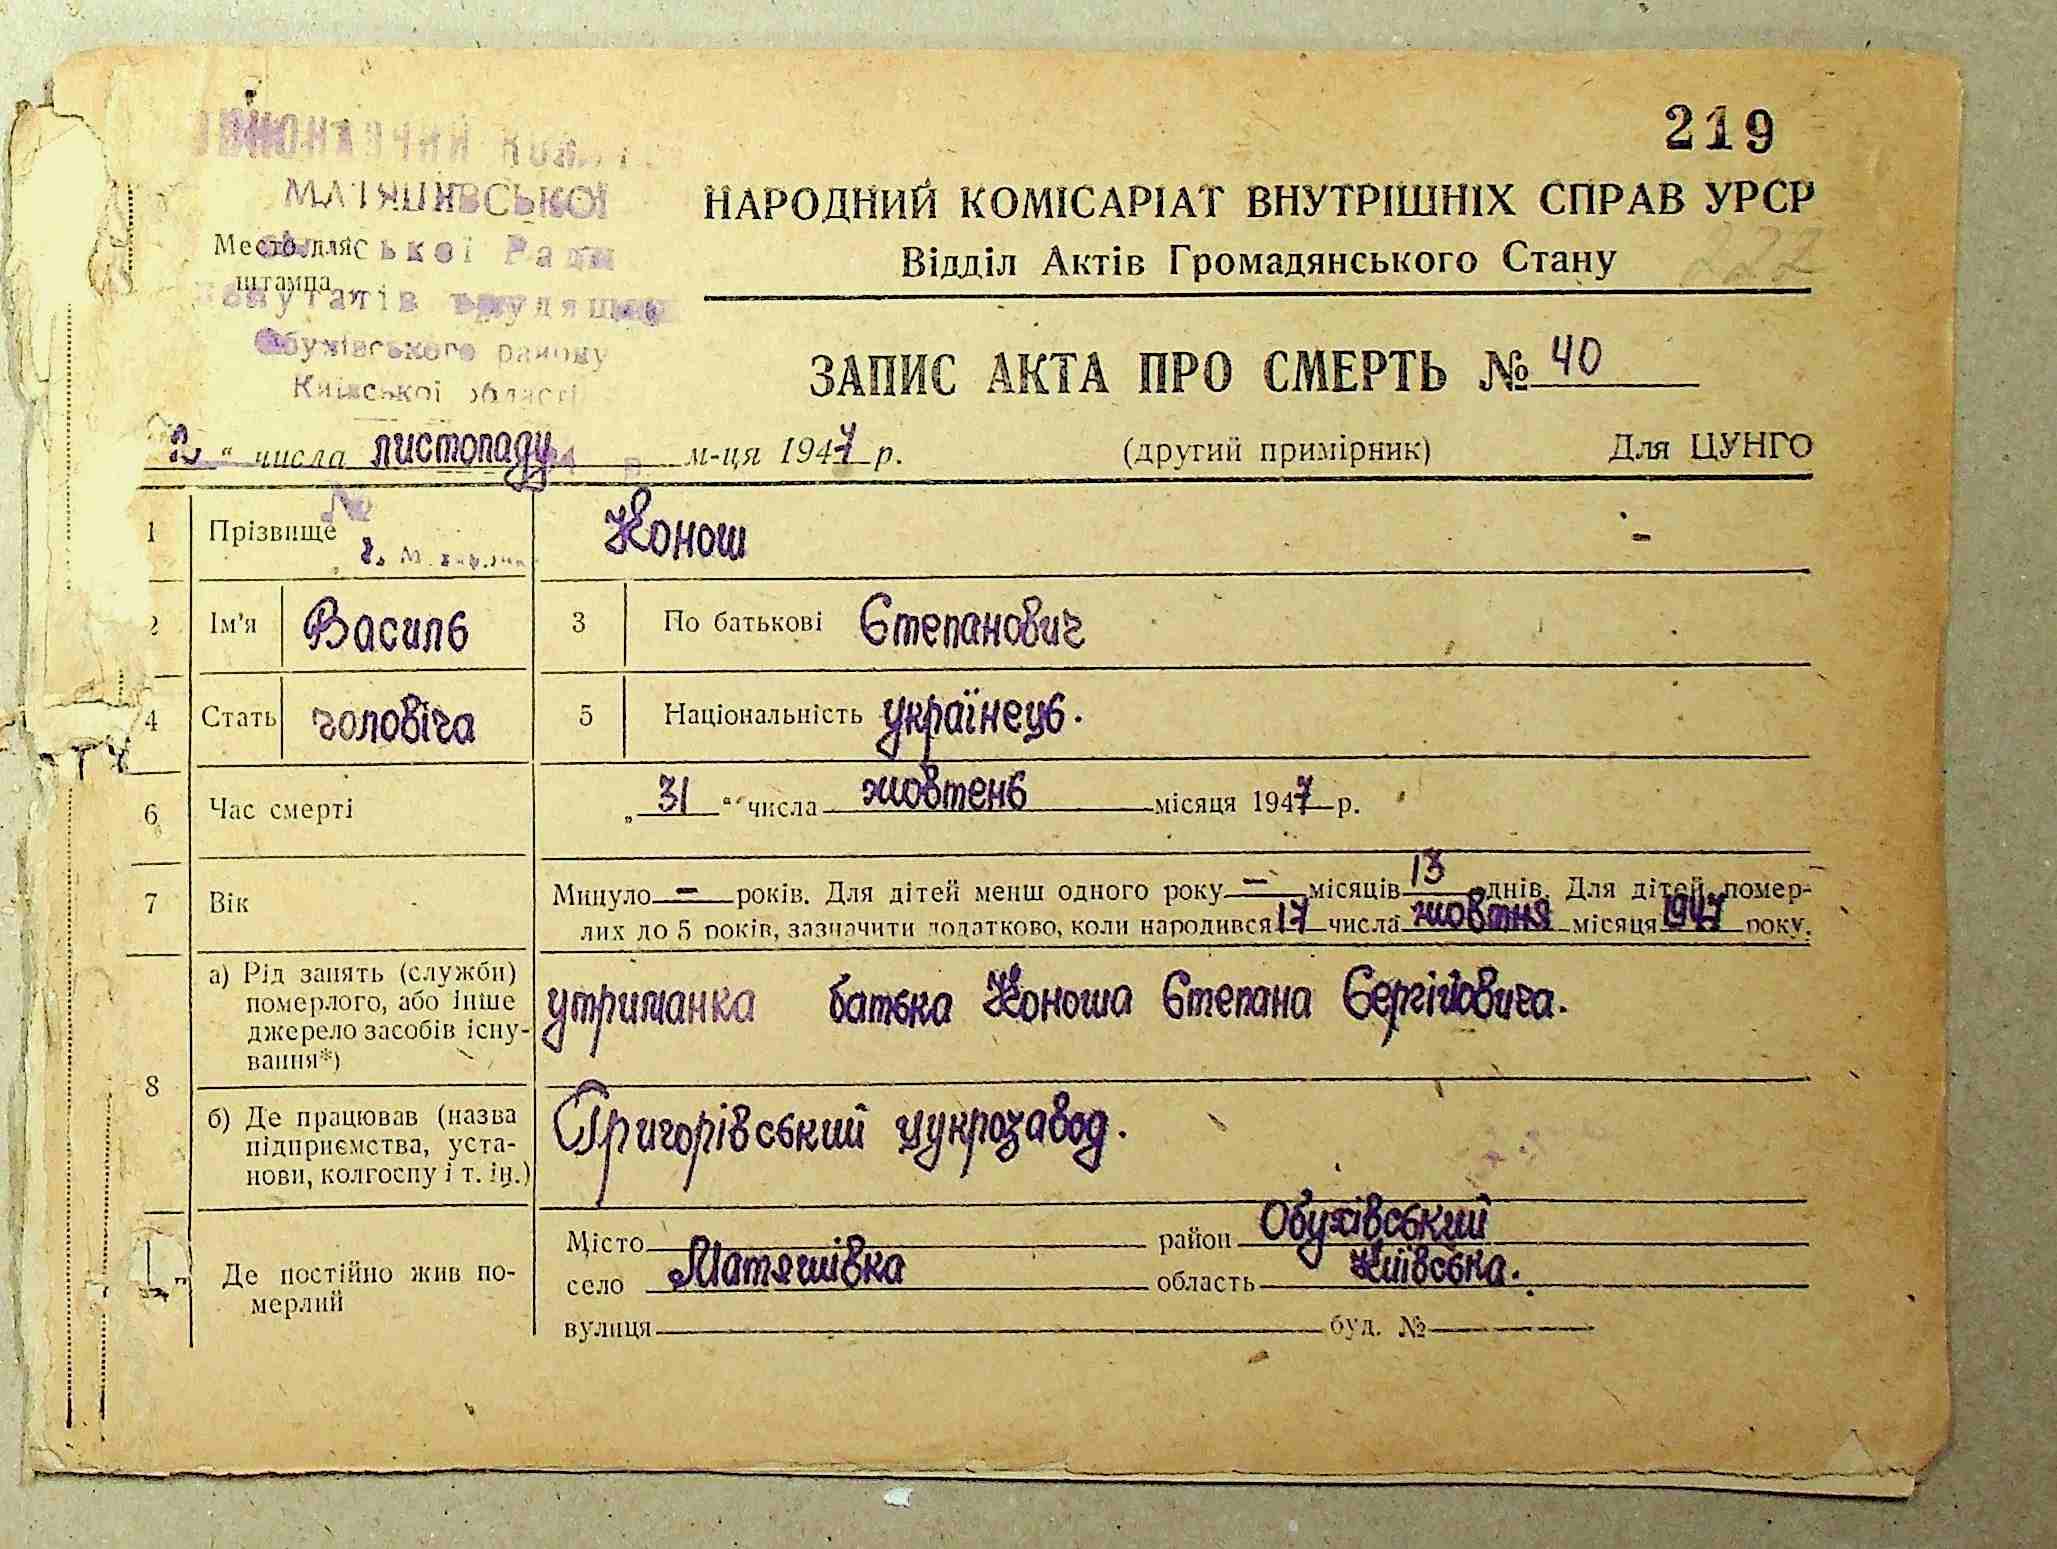 219
ВИКОНАВЧИЙ
МАТЯШІВСЬКОЇ
НАРОДНИЙ КОМІСАРІАТ ВНУТРІШНІХ СПРАВ УРСР
Место для ської Ради
Відділ Актів Громадянського Стану
222
штампа
депутатів трудящих
Обухівського району
ЗАПИС АКТА ПРО СМЕРТЬ № 40
Київської області
2 " числа листопаду м-ця 1947 р. (другий примірник) Для ЦУНГО
№
1 Прізвище Конош -
2 Ім'я Василь 3 По батькові Степанович
4 Стать чоловіча 5 Національність українець.
6 Час смерті „ 31 " числа жовтень місяця 1947 р.
7 Вік Минуло — років. Для дітей менш одного року — місяців 13 днів. Для дітей помер-
лих до 5 років, зазначити додатково, коли народився 17 числа жовтня місяця 1947 року.
8
а) Рід занять (служби)
померлого, або інше
джерело засобів існу-
вання*)
утриманка батька Коноша Степана Сергійовича.
б) Де працював (назва
підприємства, уста-
нови, колгоспу і т. ін.)
Григорівський цукрозавод.
Де постійно жив по-
мерлий
Місто район Обухівський
село Матяшівка область Київська.
вулиця буд. №